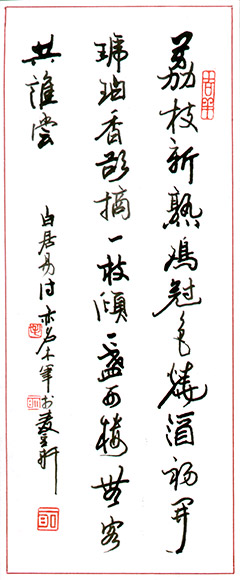 荔枝新熟鸡冠色烧酒初开
琥珀香欲摘一枝倾一盏西楼無客
共誰尝
白居易诗